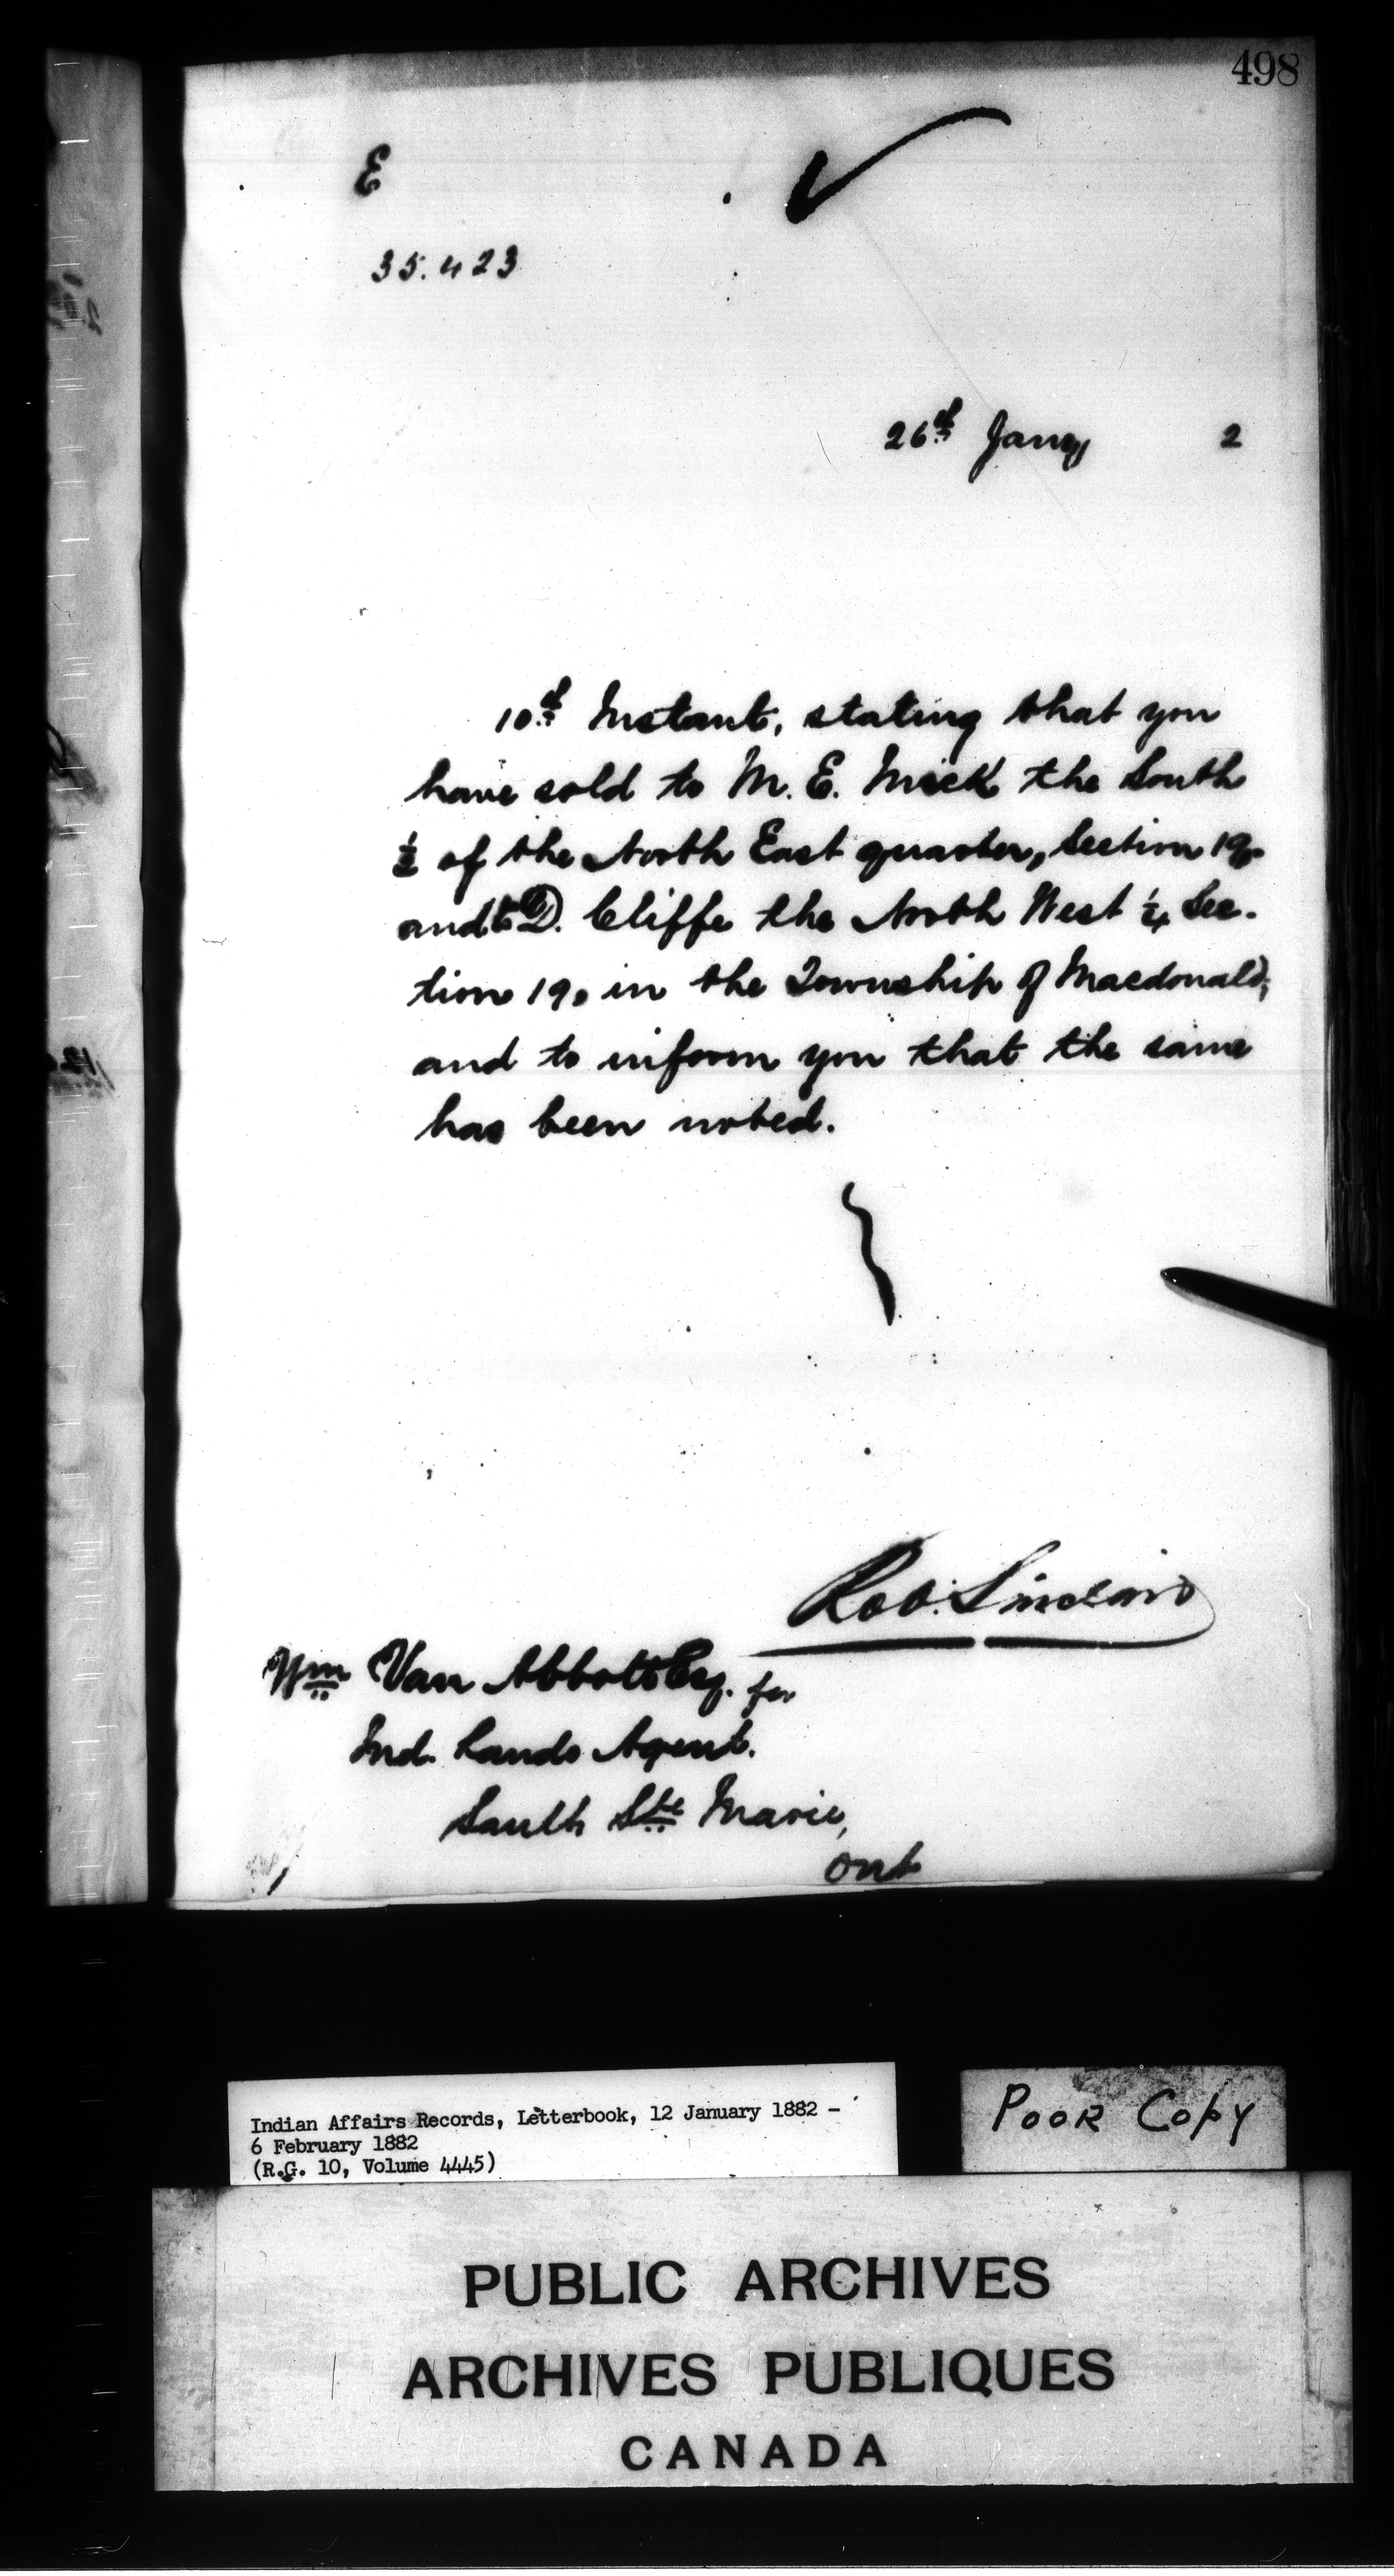 498
E
35.423
26th Jany 2
10th Instant, stating that you
have sold to M. E. Mick the South
½ of the North East quarter, Section 19.
and to D. Cliffe the North West ¼ Sec-
tion 19. in the Township of Macdonald;
and to inform you that the same
has been noted.
Rob. Sinclair
Wm Van Abbott Esq. for
Ind. Lands Agent.
Sault Ste Marie,
Ont
Indian Affairs Records, Letterbook, 12 January 1882 -
6 February 1882
(R.G. 10, Volume 4445)
POOR COPY
PUBLIC ARCHIVES
ARCHIVES PUBLIQUES
CANADA